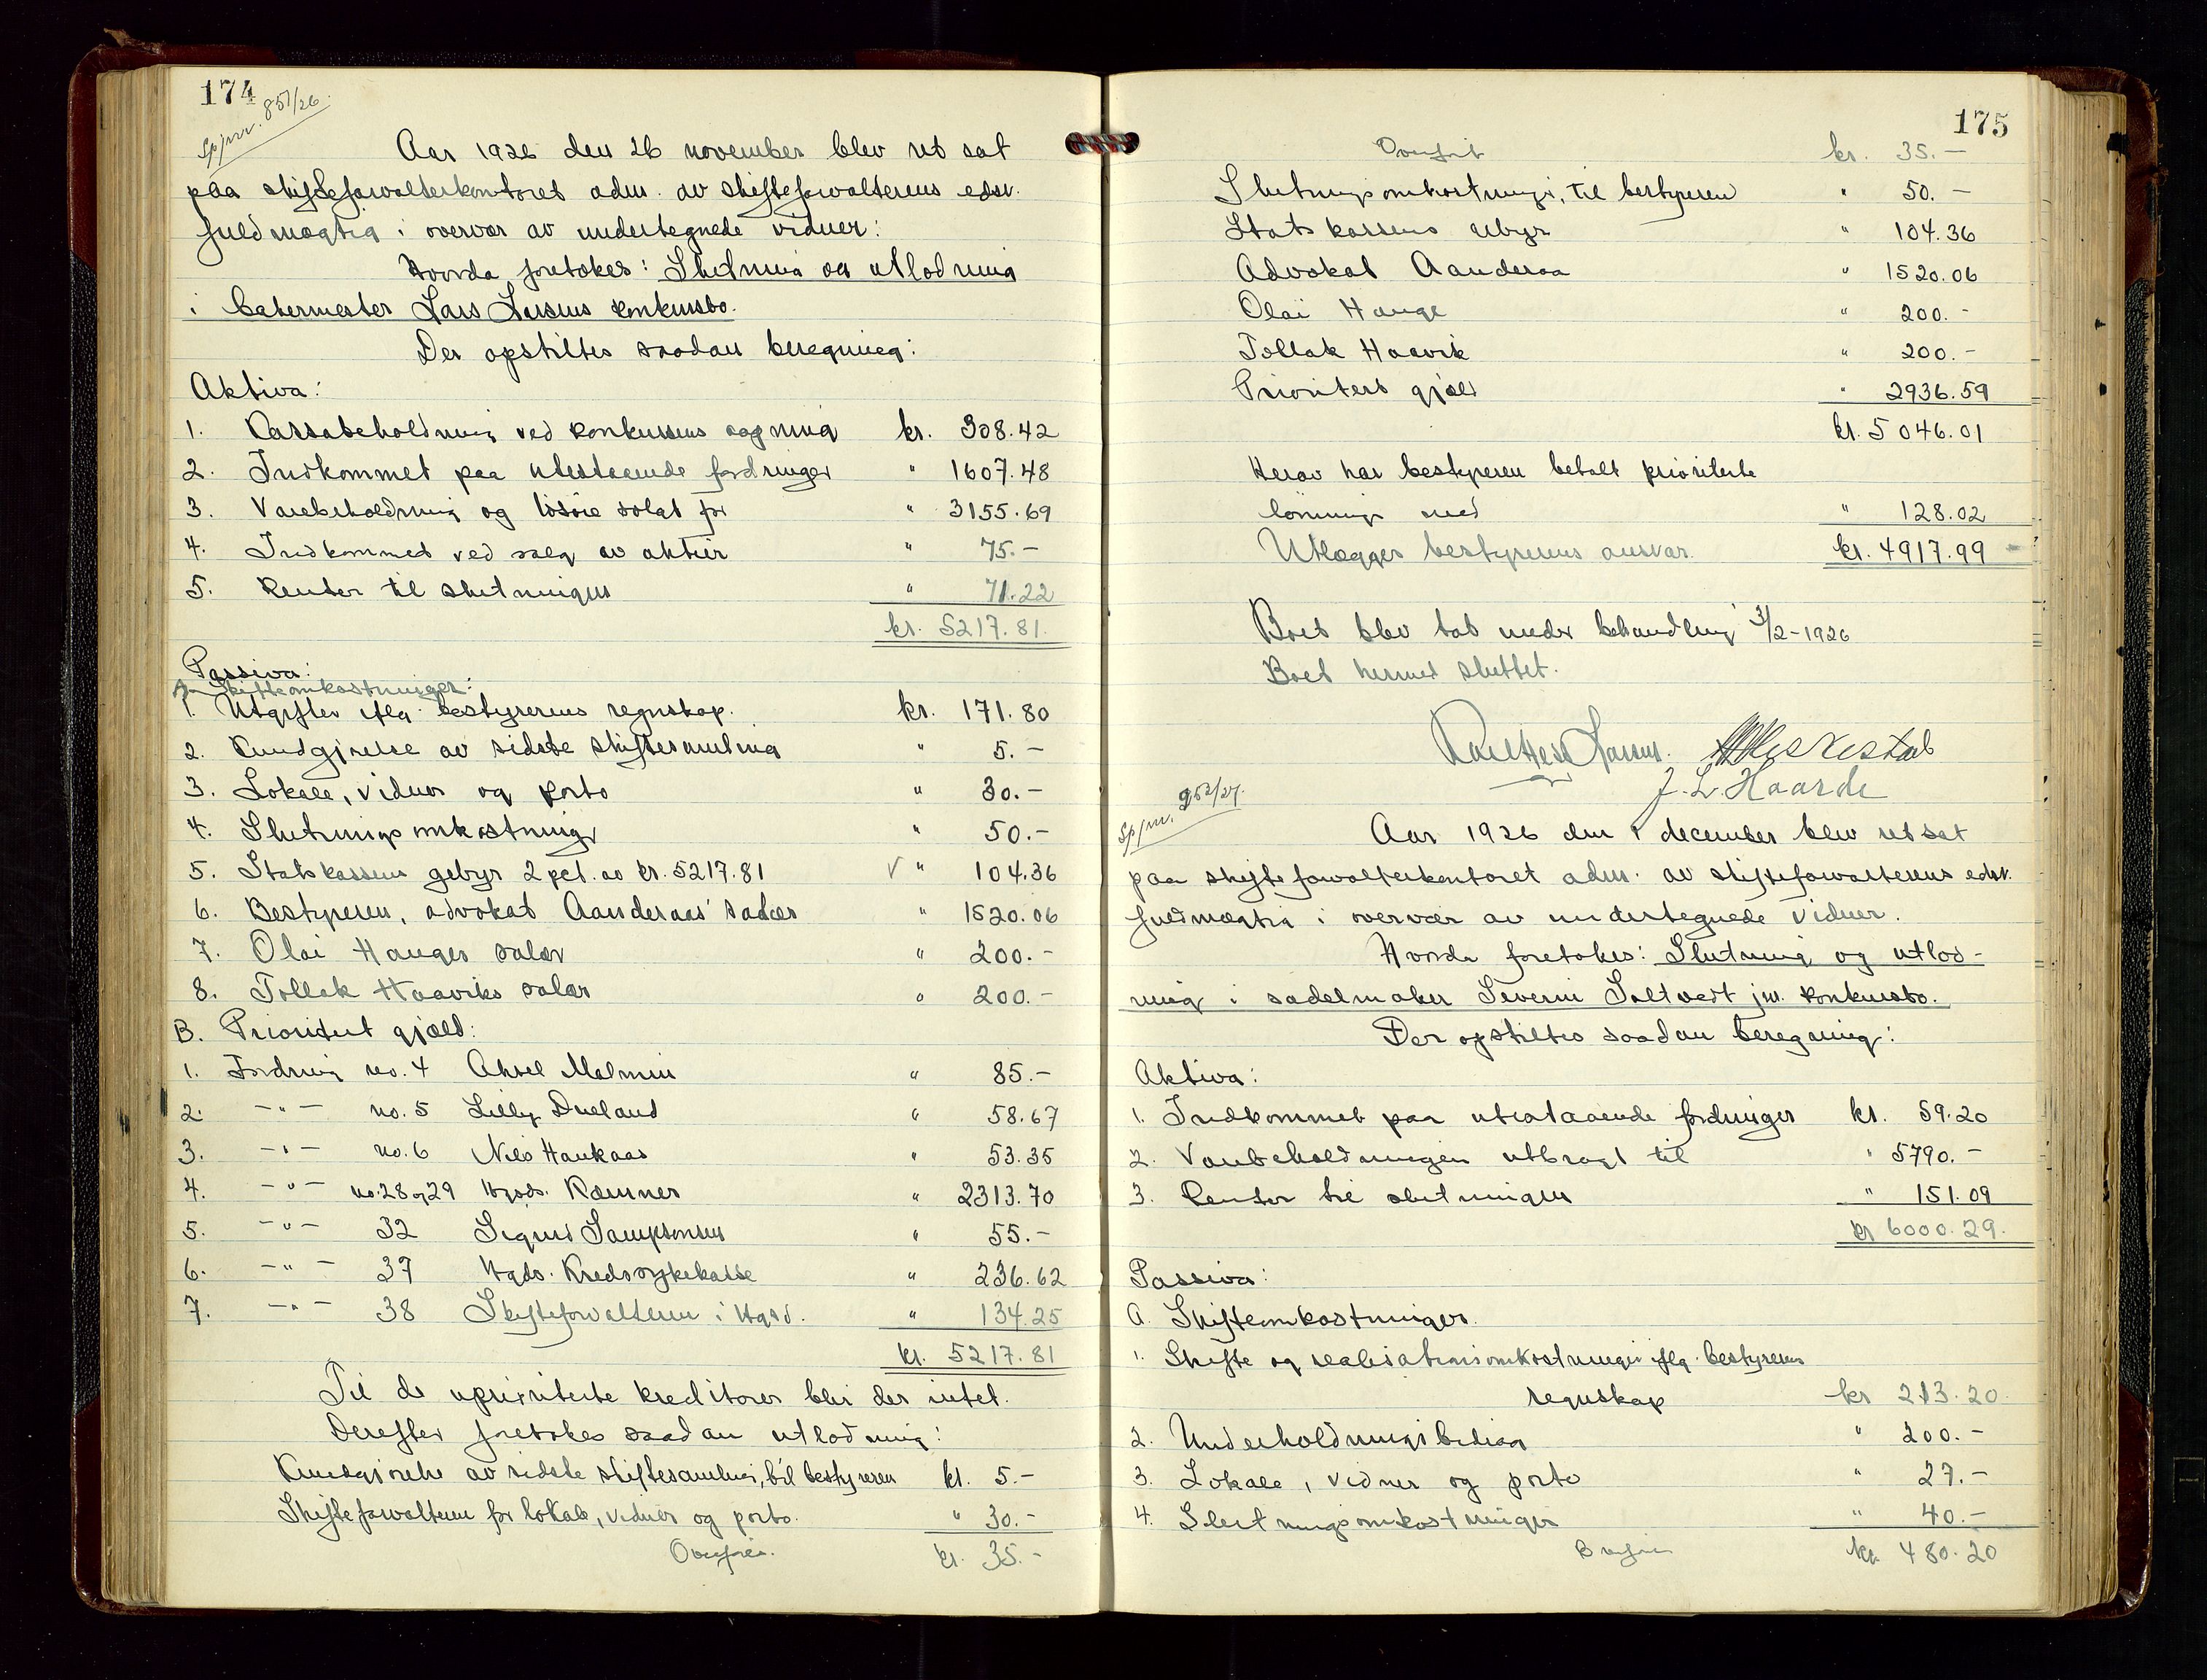 174
Spjnr. 851/26.
Aar 1926 den 26 november blev ret sat
paa skifteforvalterkontoret adm. av skifteforvalterens edsv.
fuldmægtig i overvær av undertegnede vidner:
Hvorda foretokes: Slutning og utlodning
i bakermester Lars Larsens konkursbo.
Der opstiltes saadan beregning:
Aktiva:
1. Kassabeholdning ved konkursens aapning kr. 308.42
2. Indkommet paa utestaaende fordringer " 1607.48
3. Varebeholdning og løsøre solgt for " 3155.69
4. Indkommet ved salg av aktier " 75.-
5. Renter til slutningen " 71.22
kr. 5217.81.
Passiva:
A. Skifteomkostninger:
1. Utgifter iflg. bestyrerens regnskap. kr. 171.80
2. Kundgjørelse av sidste skiftesamling " 5.-
3. Lokale, vidner og porto " 30.-
4. Slutningsomkostninger " 50.-
5. Statskassens gebyr 2 pct. av kr. 5217.81 √ " 104.36
6. Bestyreren, advokat Aanderaas' salær " 1520.06
7. Olai Hauges salær " 200.-
8. Tollak Haaviks salær " 200.-
B. Prioritert gjæld:
1. Fordring no. 4 Aksel Malmin " 85.-
2. -"- no. 5 Lilly Dueland " 58.67
3. -"- no. 6 Nils Haukaas " 53.35
4. -"- no. 28 og 29 Hgsds. Kæmner " 2313.70
5. -"- 32 Sigurd Sampsonsen " 55.-
6. -"- 37 Hgds. Kredssykekasse " 236.62
7. -"- 38 Skifteforvalteren i Hgsd. " 134.25
kr. 5217.81
Til de uprioriterte kreditorer blir der intet.
Derefter foretokes saadan utlodning:
Kundgjørelse av sidste skiftesamling, til bestyreren kr. 5.-
Skifteforvalteren for lokale, vidner og porto. " 30.-
Overføres. kr. 35.-
175
Overført kr. 35.-
Slutningsomkostninger, til bestyreren " 50.-
Statskassens gebyr " 104.36
Advokat Aanderaa " 1520.06
Olai Hauge " 200.-
Tollak Haavik " 200.-
Prioritert gjæld " 2936.59
kr. 5046.01
Herav har bestyreren betalt prioriterte
lønninger med " 128.02
Utlægges bestyrerens ansvar. kr. 4917.99
Boet blev tat under behandling 3/2-1926
Boet hermed sluttet.
J. L. Haarde
Spjnr. 952/27.
Aar 1926 den 1 december blev ret sat
paa skifteforvalterkontoret adm. av skifteforvalterens edsv.
fuldmægtig i overvær av undertegnede vidner.
Hvorda foretokes: Slutning og utlod-
ning i sadelmaker Severin Saltvedt jw. konkursbo.
Der opstiltes saadan beregning:
Aktiva:
1. Indkommet paa utestaaende fordringer kr. 59.20
2. Varebeholdningen utbragt til " 5790.-
3. Renter til slutningen " 151.09
kr 6000.29.
Passiva:
A. Skifteomkostninger.
1. Skifte og realisationsomkostninger iflg. bestyrerens
regnskap kr 213.20.
2. Underholdningsbidrag " 200.-
3. Lokale, vidner og porto " 27.-
4. Slutningsomkostninger " 40.-
kr. 480.20